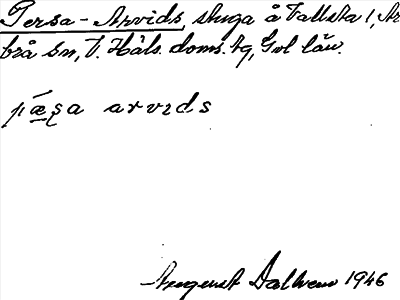 Persa-Arvids, stuga å Vallsta 1, Ar
brå sn, V. Häls. doms. tg, Gvl län.
pǽ̲ʂa arvɪds
August Dalhem 1946